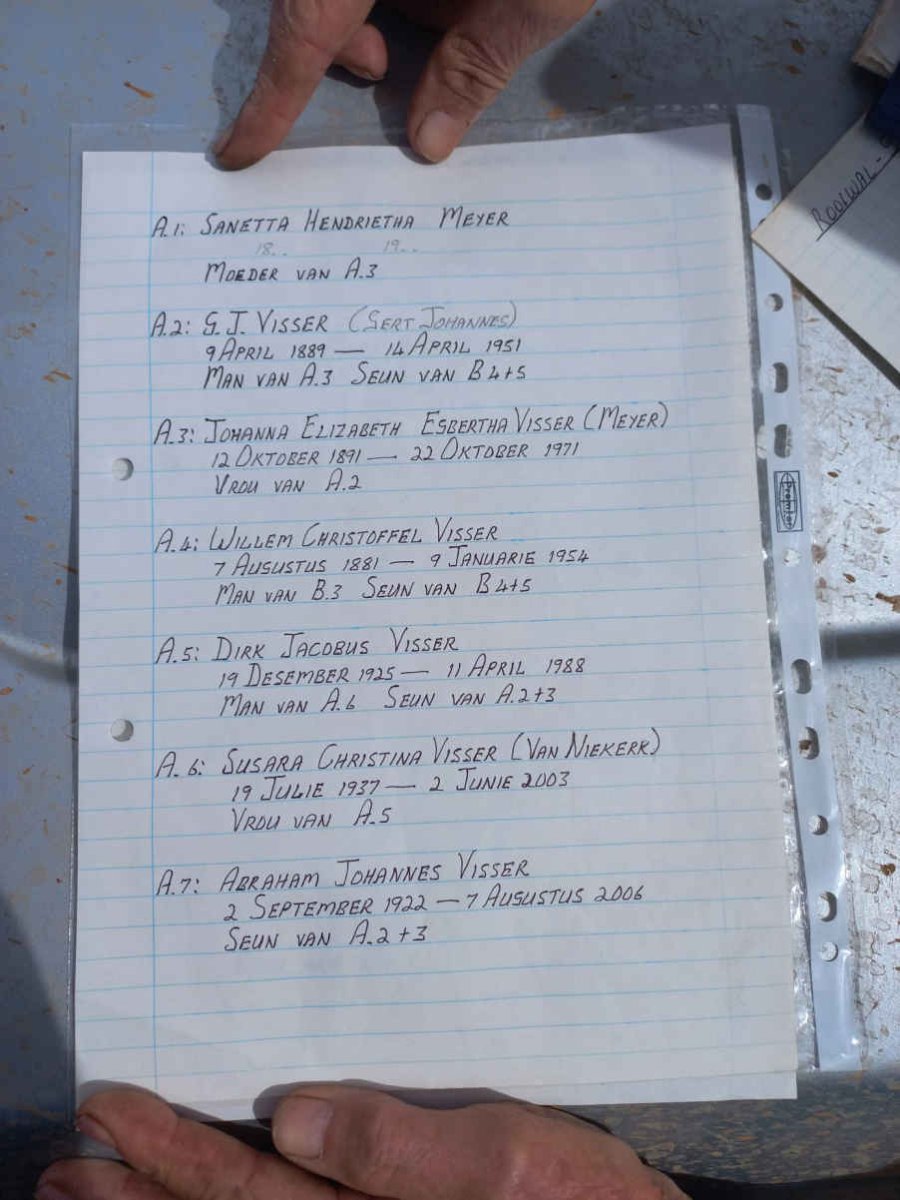 A.1: SANETTA HENDRIETHA MEYER
18.. 19..
MOEDER VAN A.3
A.2: G. J. VISSER (GERT JOHANNES)
9 APRIL 1889 — 14 APRIL 1951
MAN VAN A.3 SEUN VAN B 4+5
A.3: JOHANNA ELIZABETH ESBERTHA VISSER (MEYER)
12 OKTOBER 1891 — 22 OKTOBER 1971
VROU VAN A.2
A.4: WILLEM CHRISTOFFEL VISSER
7 AUGUSTUS 1881 — 9 JANUARIE 1954
MAN VAN B.3 SEUN VAN B 4+5
A.5: DIRK JACOBUS VISSER
19 DESEMBER 1925 — 11 APRIL 1988
MAN VAN A.6 SEUN VAN A.2+3
A.6: SUSARA CHRISTINA VISSER (VAN NIEKERK)
19 JULIE 1937 — 2 JUNIE 2003
VROU VAN A.5
A.7: ABRAHAM JOHANNES VISSER
2 SEPTEMBER 1922 — 7 AUGUSTUS 2006
SEUN VAN A.2+3
ROOIWAL-
Premier